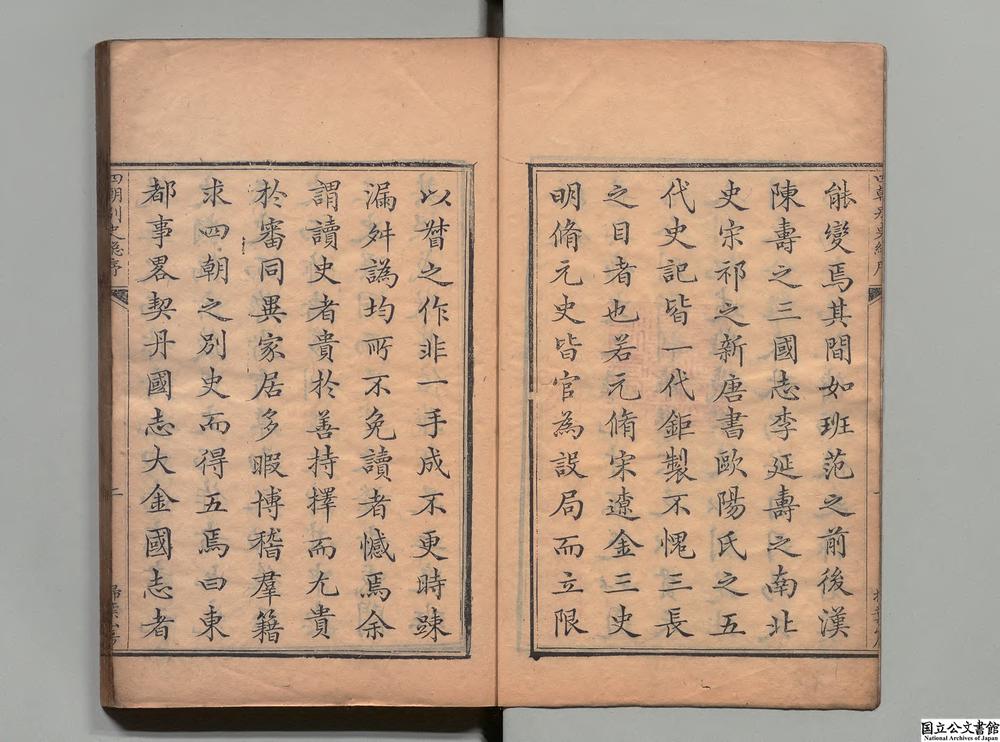 能變焉其間如班范之前後漢
陳壽之三國志李延壽之南北
史宋祁之新唐書歐陽氏之五
代史記皆一代鉅製不愧三長
之目者也若元脩宋遼金三史
明脩元史皆官為設局而立限
以朁之作非一手成不更時踈
漏舛譌均所不免讀者憾焉余
謂讀史者貴於善持擇而尤貴
於審同異家居多暇博稽羣籍
求四朝之別史而得五焉曰東
都事畧契丹國志大金國志者
四朝別史總序
二
国立公文書館
National Archives of Japan